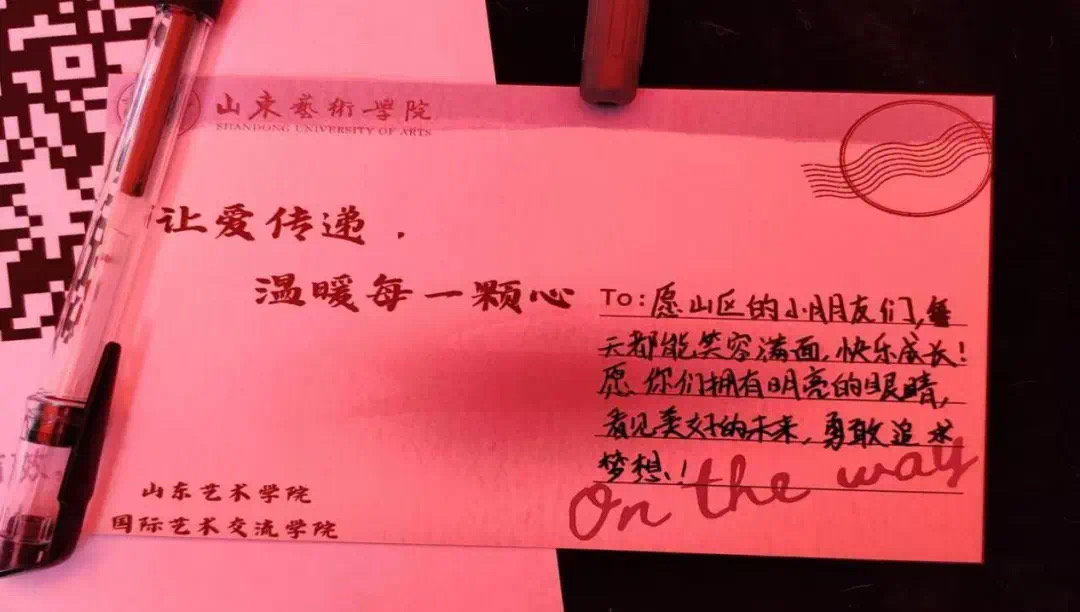 山东艺术学院
SHANDONG UNIVERSITY OF ARTS
让爱传递，
温暖每一颗心
To:愿山区的小朋友们,每
天都能笑容满面,快乐成长!
愿你们拥有明亮的眼睛,
看见美好的未来,勇敢追求
梦想!!
On the way
山东艺术学院
国际艺术交流学院